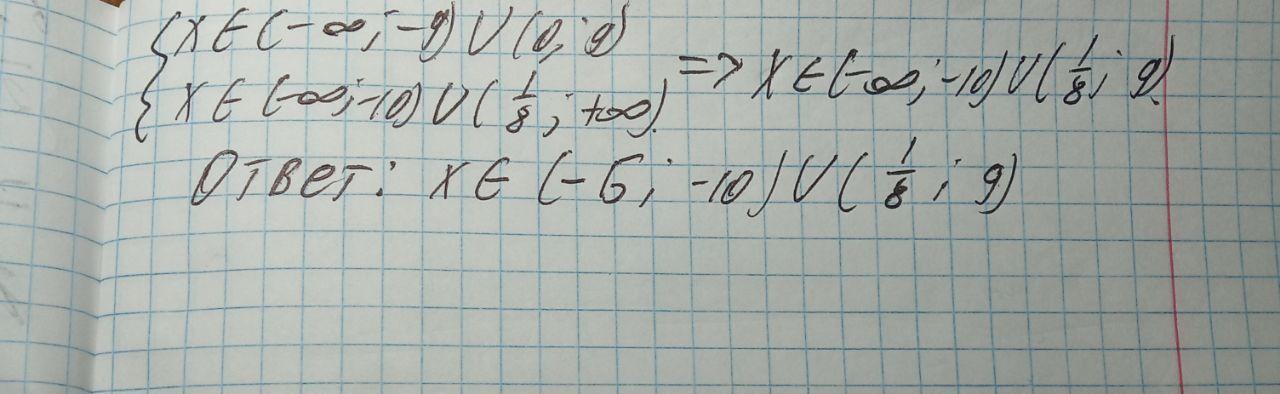 {x∈(-∞;-9)∪(0;9)
{x∈(-∞;-10)∪(1/8; +∞). => x∈(-∞;-10)∪(1/8; 9).
Ответ: x∈(-б; -10)∪(1/8; 9)